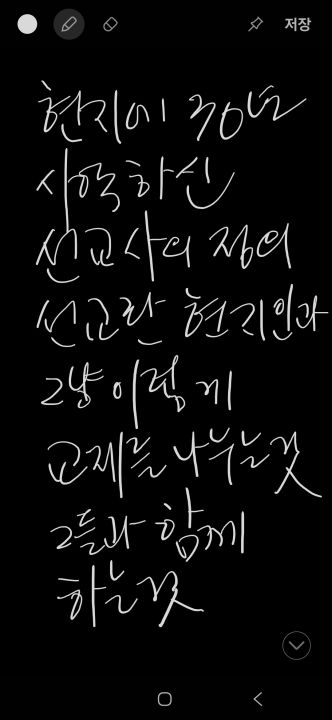 저장
현지에 30년
사역하신
선교사의 정의
선교란 현지인과
그냥 이렇게
교제를 나누는것
그들과 함께
하는것